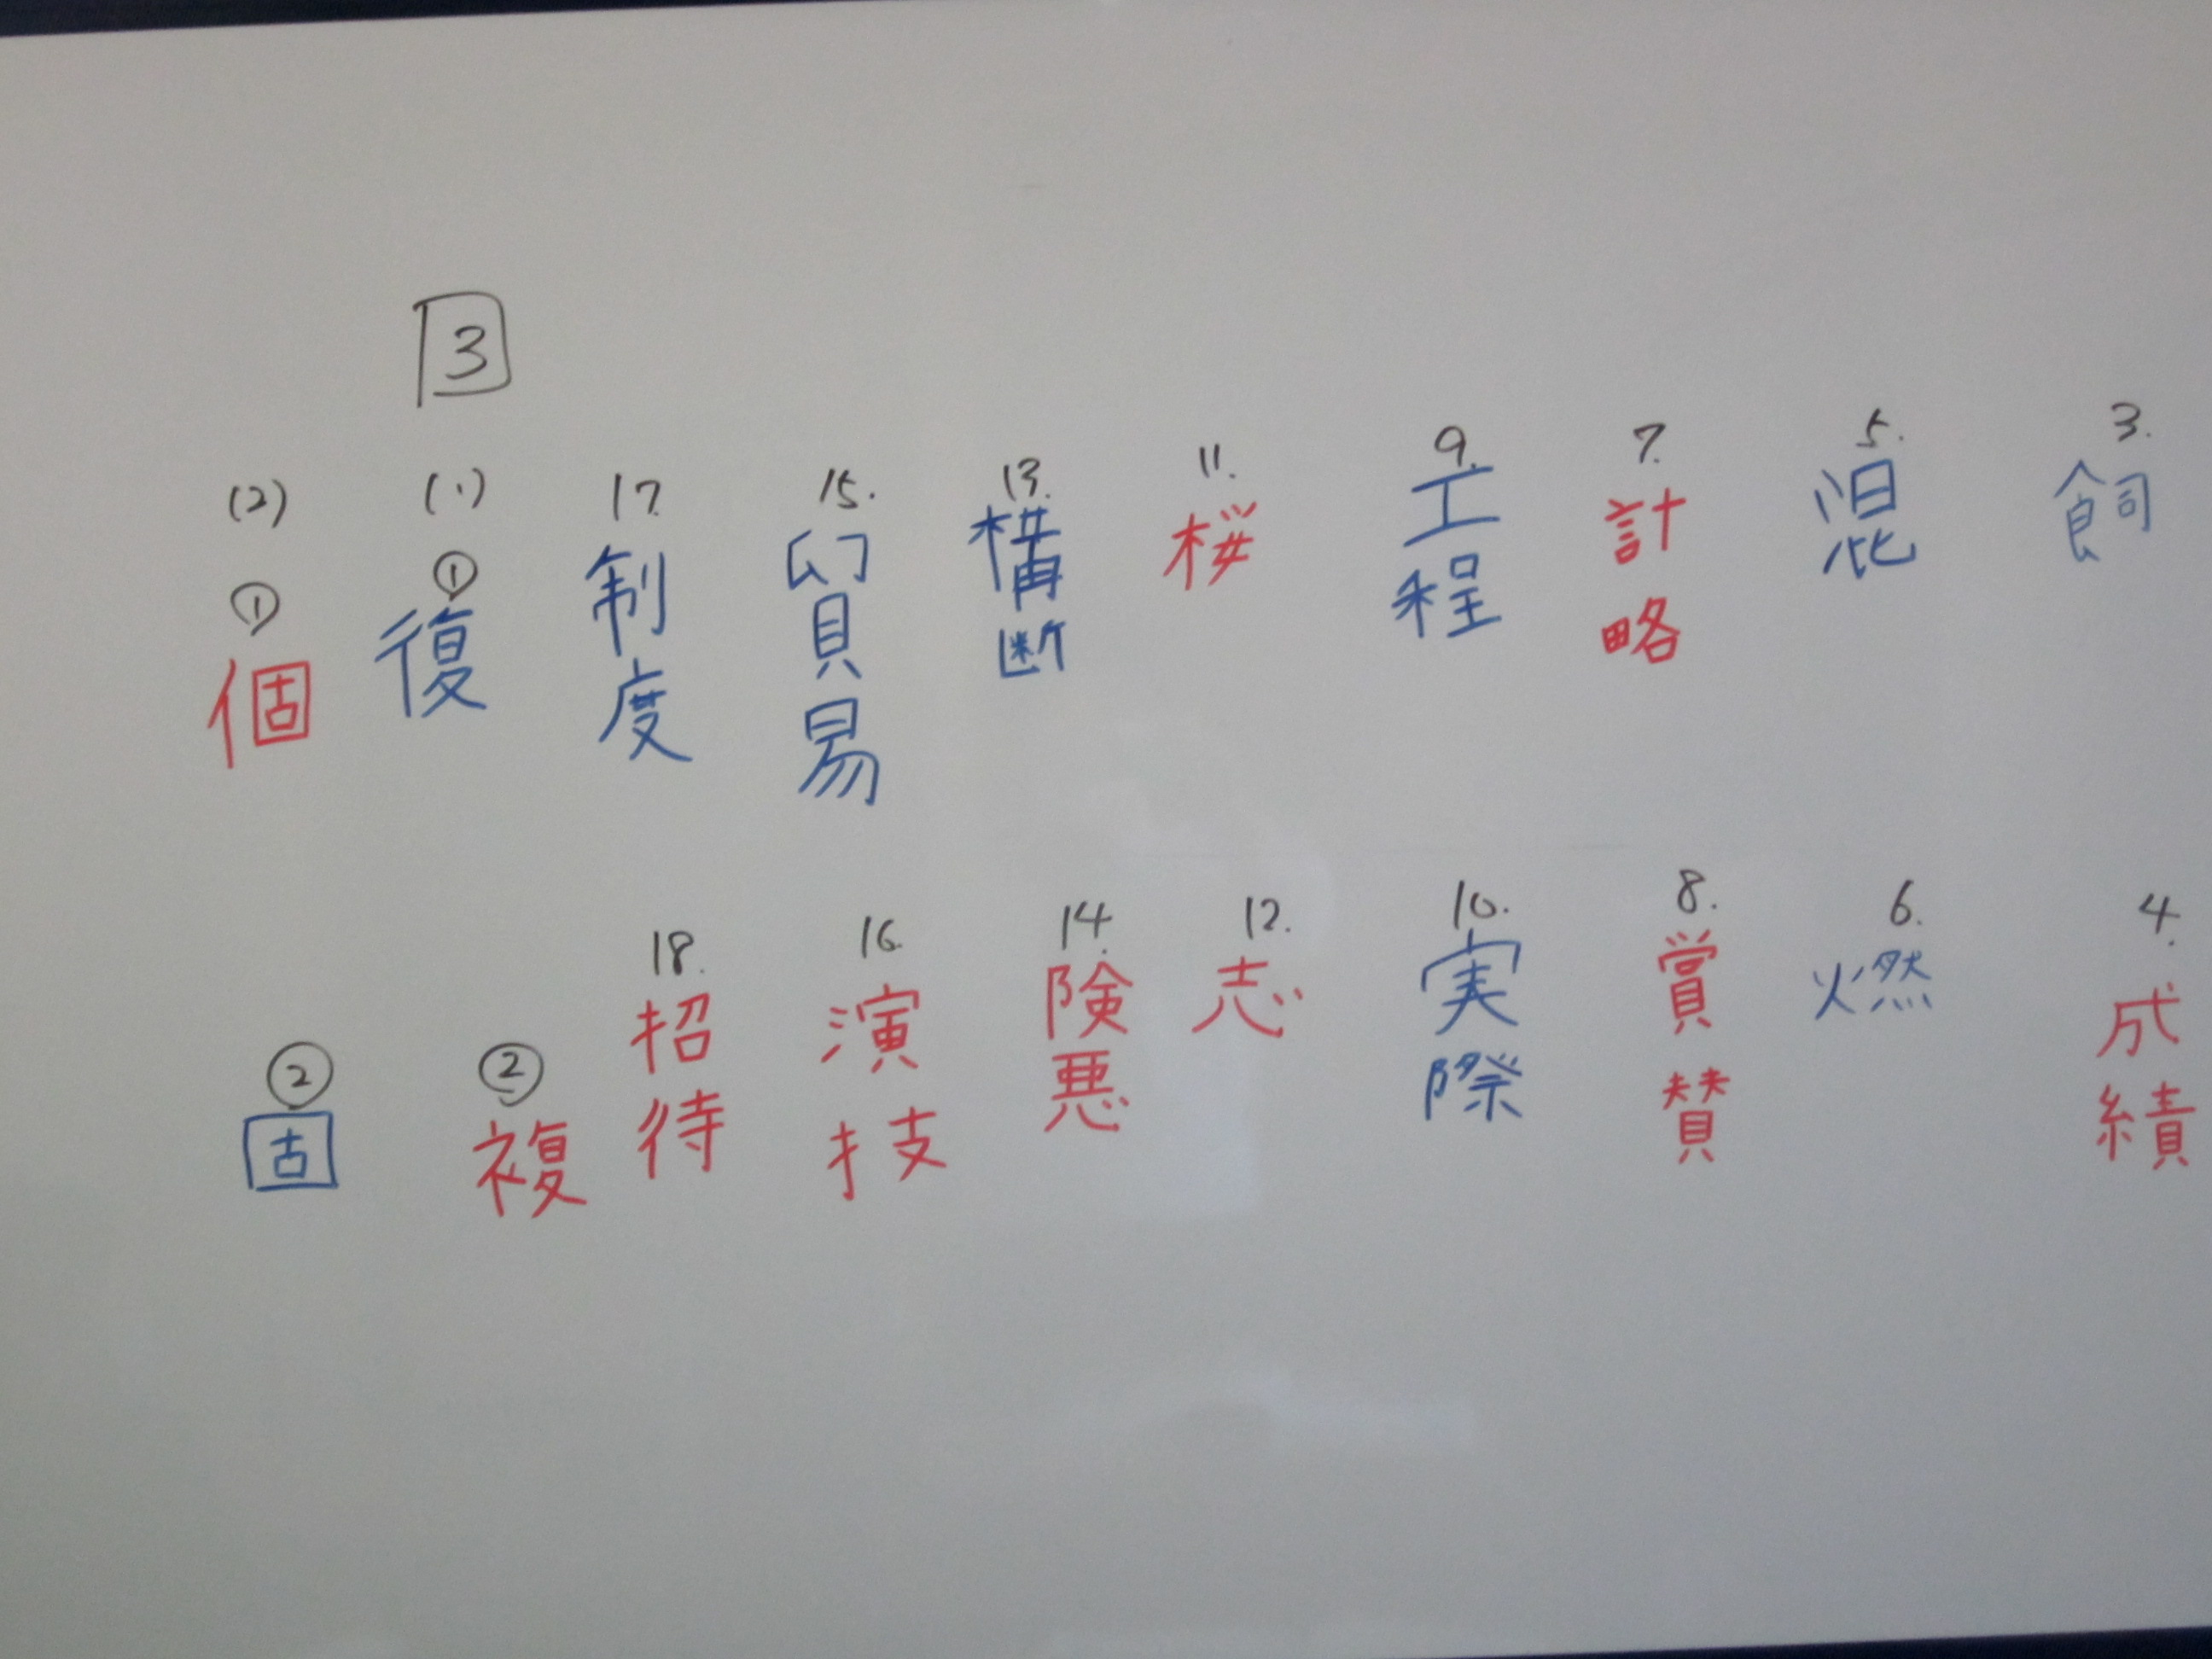 3. 飼
4. 成績
5. 混
6. 燃
7. 計略
8. 賞賛
9. 工程
10. 実際
11. 桜
12. 志
13. 構断
14. 険悪
15. 貿易
16. 演技
17. 制度
18. 招待
3
(1) ① 復
② 複
(2) ① 個
② 固